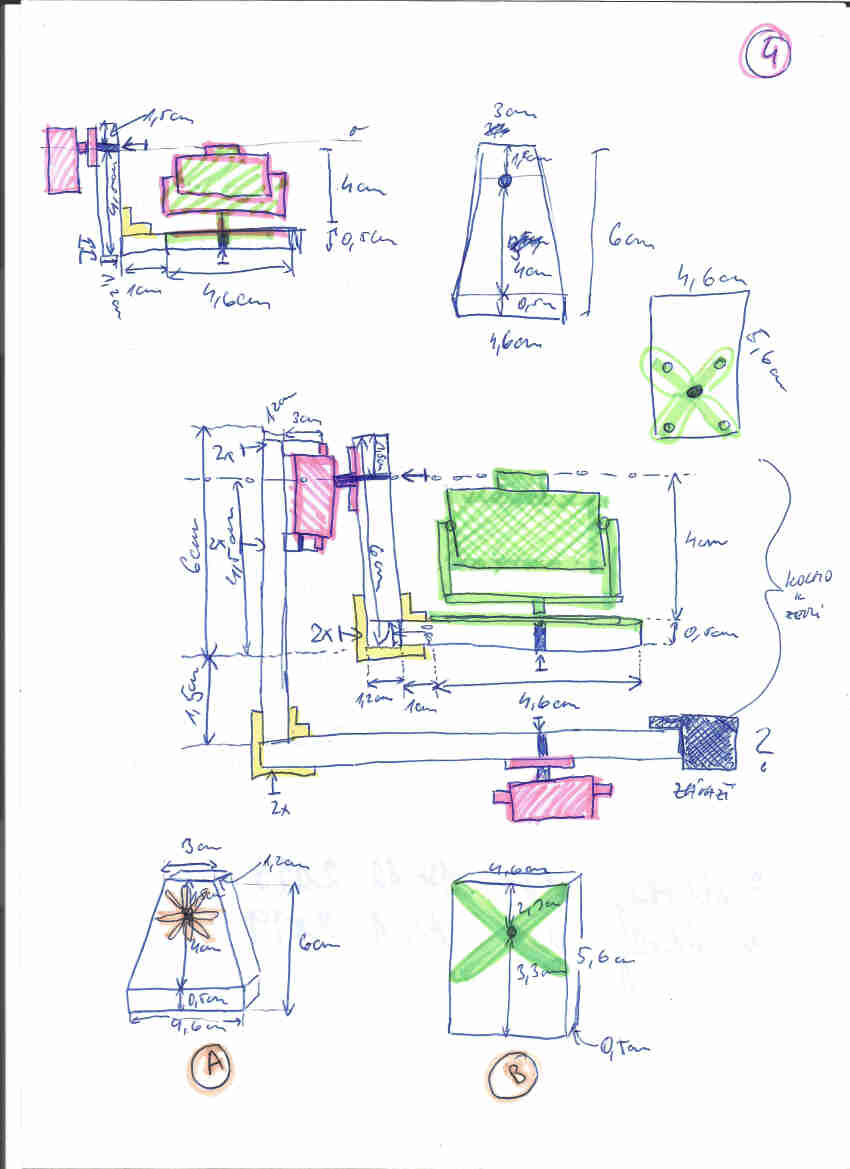 4
1,5cm
3cm
1,5cm
4cm
0,5cm
1cm
4,6cm
4cm
0,5cm
6cm
4,6cm
4,6cm
5,6cm
3cm
2x
6cm
2x
4,5cm
1,5cm
6cm
4cm
2x
0,5cm
1,2cm
1cm
4,6cm
1,5cm
2x
KOLMO
K
ZEMI
ZÁVAŽÍ
?
3cm
1,2cm
4cm
6cm
0,5cm
4,6cm
A
4,6cm
3,3cm
5,6cm
0,5cm
B